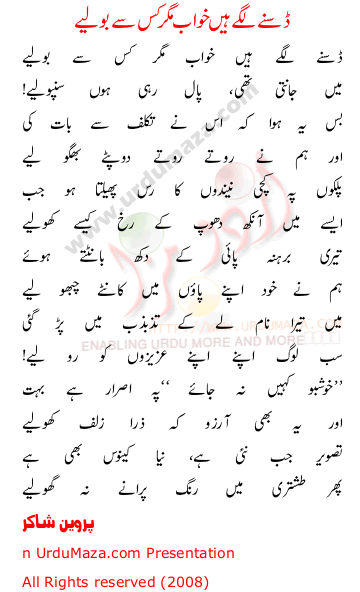 ڈسنے لگے ہیں خواب مگر کس سے بولیے
ڈسنے لگے ہیں خواب مگر کس سے بولیے
میں جانتی تھی، پال رہی ہوں سنپولیے!
بس یہ ہوا کہ اس نے تکلف سے بات کی
اور ہم نے روتے روتے دوپٹے بھگو لیے
پلکوں پہ کچی نیندوں کا رس پھیلتا ہو جب
ایسے میں آنکھ دھوپ کے رخ کیسے کھولیے
تیری برہنہ پائی کے دکھ بانٹتے ہوئے
ہم نے خود اپنے پاؤں میں کانٹے چبھو لیے
میں تیرا نام لے کے تذبذب میں پڑ گئی
سب لوگ اپنے اپنے عزیزوں کو رو لیے!
”خوشبو کہیں نہ جائے“ پہ اصرار ہے بہت
اور یہ بھی آرزو کہ ذرا زلف کھولیے
تصویر جب نئی ہے، نیا کینوس بھی ہے
پھر طشتری میں رنگ پرانے نہ گھولیے
پروین شاکر
n UrduMaza.com Presentation
All Rights reserved (2008)
www.urdumaza.com
اردو مزا
ENABLING URDU MORE AND MORE